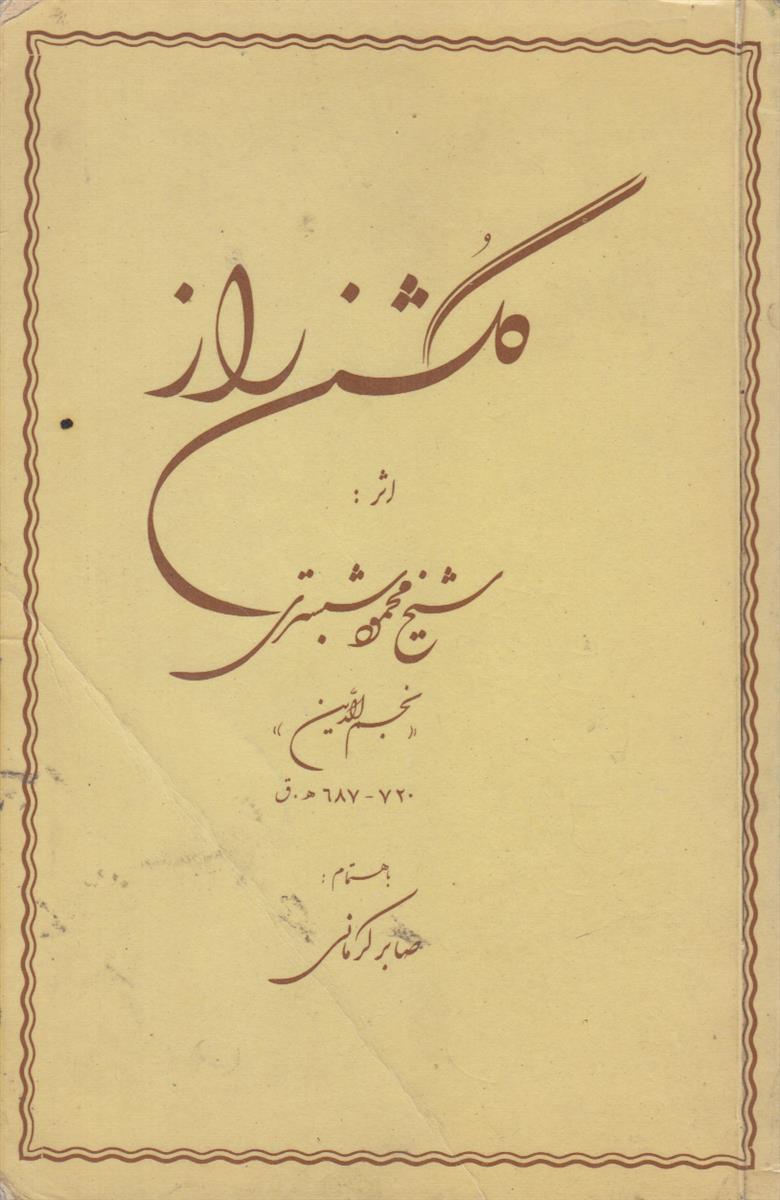 گلشن راز
اثر :
شیخ محمود شبستری
«نجم الدّین»
۷۲۰ - ۶۸۷ ه.ق
باهتمام :
صابر کرمانی